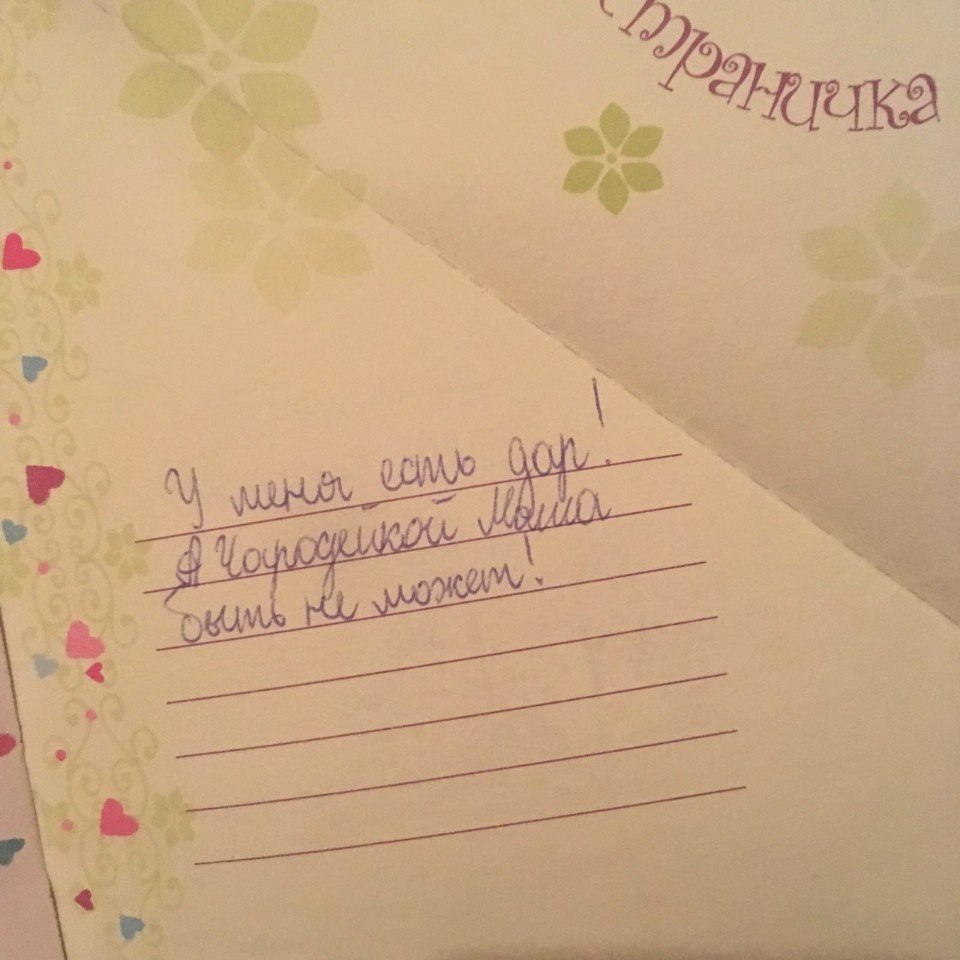 страничка
У меня есть дар!
А Чародейкой Маша
быть не может!